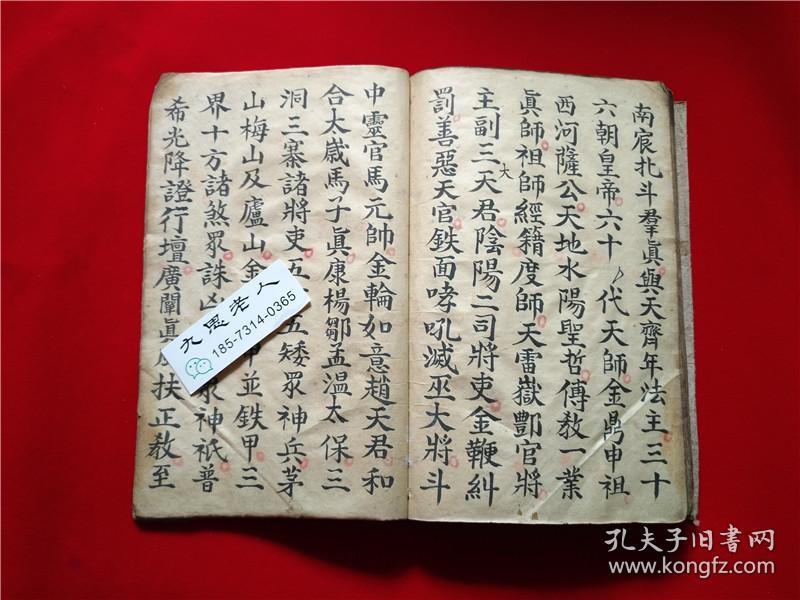 南宸北斗羣眞與天齊年法主三十
六朝皇帝六十 代天師金鼎申祖
西河薩公天地水陽聖哲傳教一業
眞師祖師經籍度師天雷嶽酆官將
主副三天君陰陽二司將吏金鞭糾
大
罰善惡天官鉄面哮吼滅巫大將斗
中靈官馬元帥金輪如意趙天君和
合太歲馬子眞康楊鄒孟温太保三
洞三寨諸將吏五 五矮眾神兵茅
山梅山及廬山金 甲並鉄甲三
界十方諸煞眾誅凶 眾神祇普
希光降證行壇廣闡眞 扶正教至
久思老人
185-7314-0365
孔夫子旧书网
www.kongfz.com